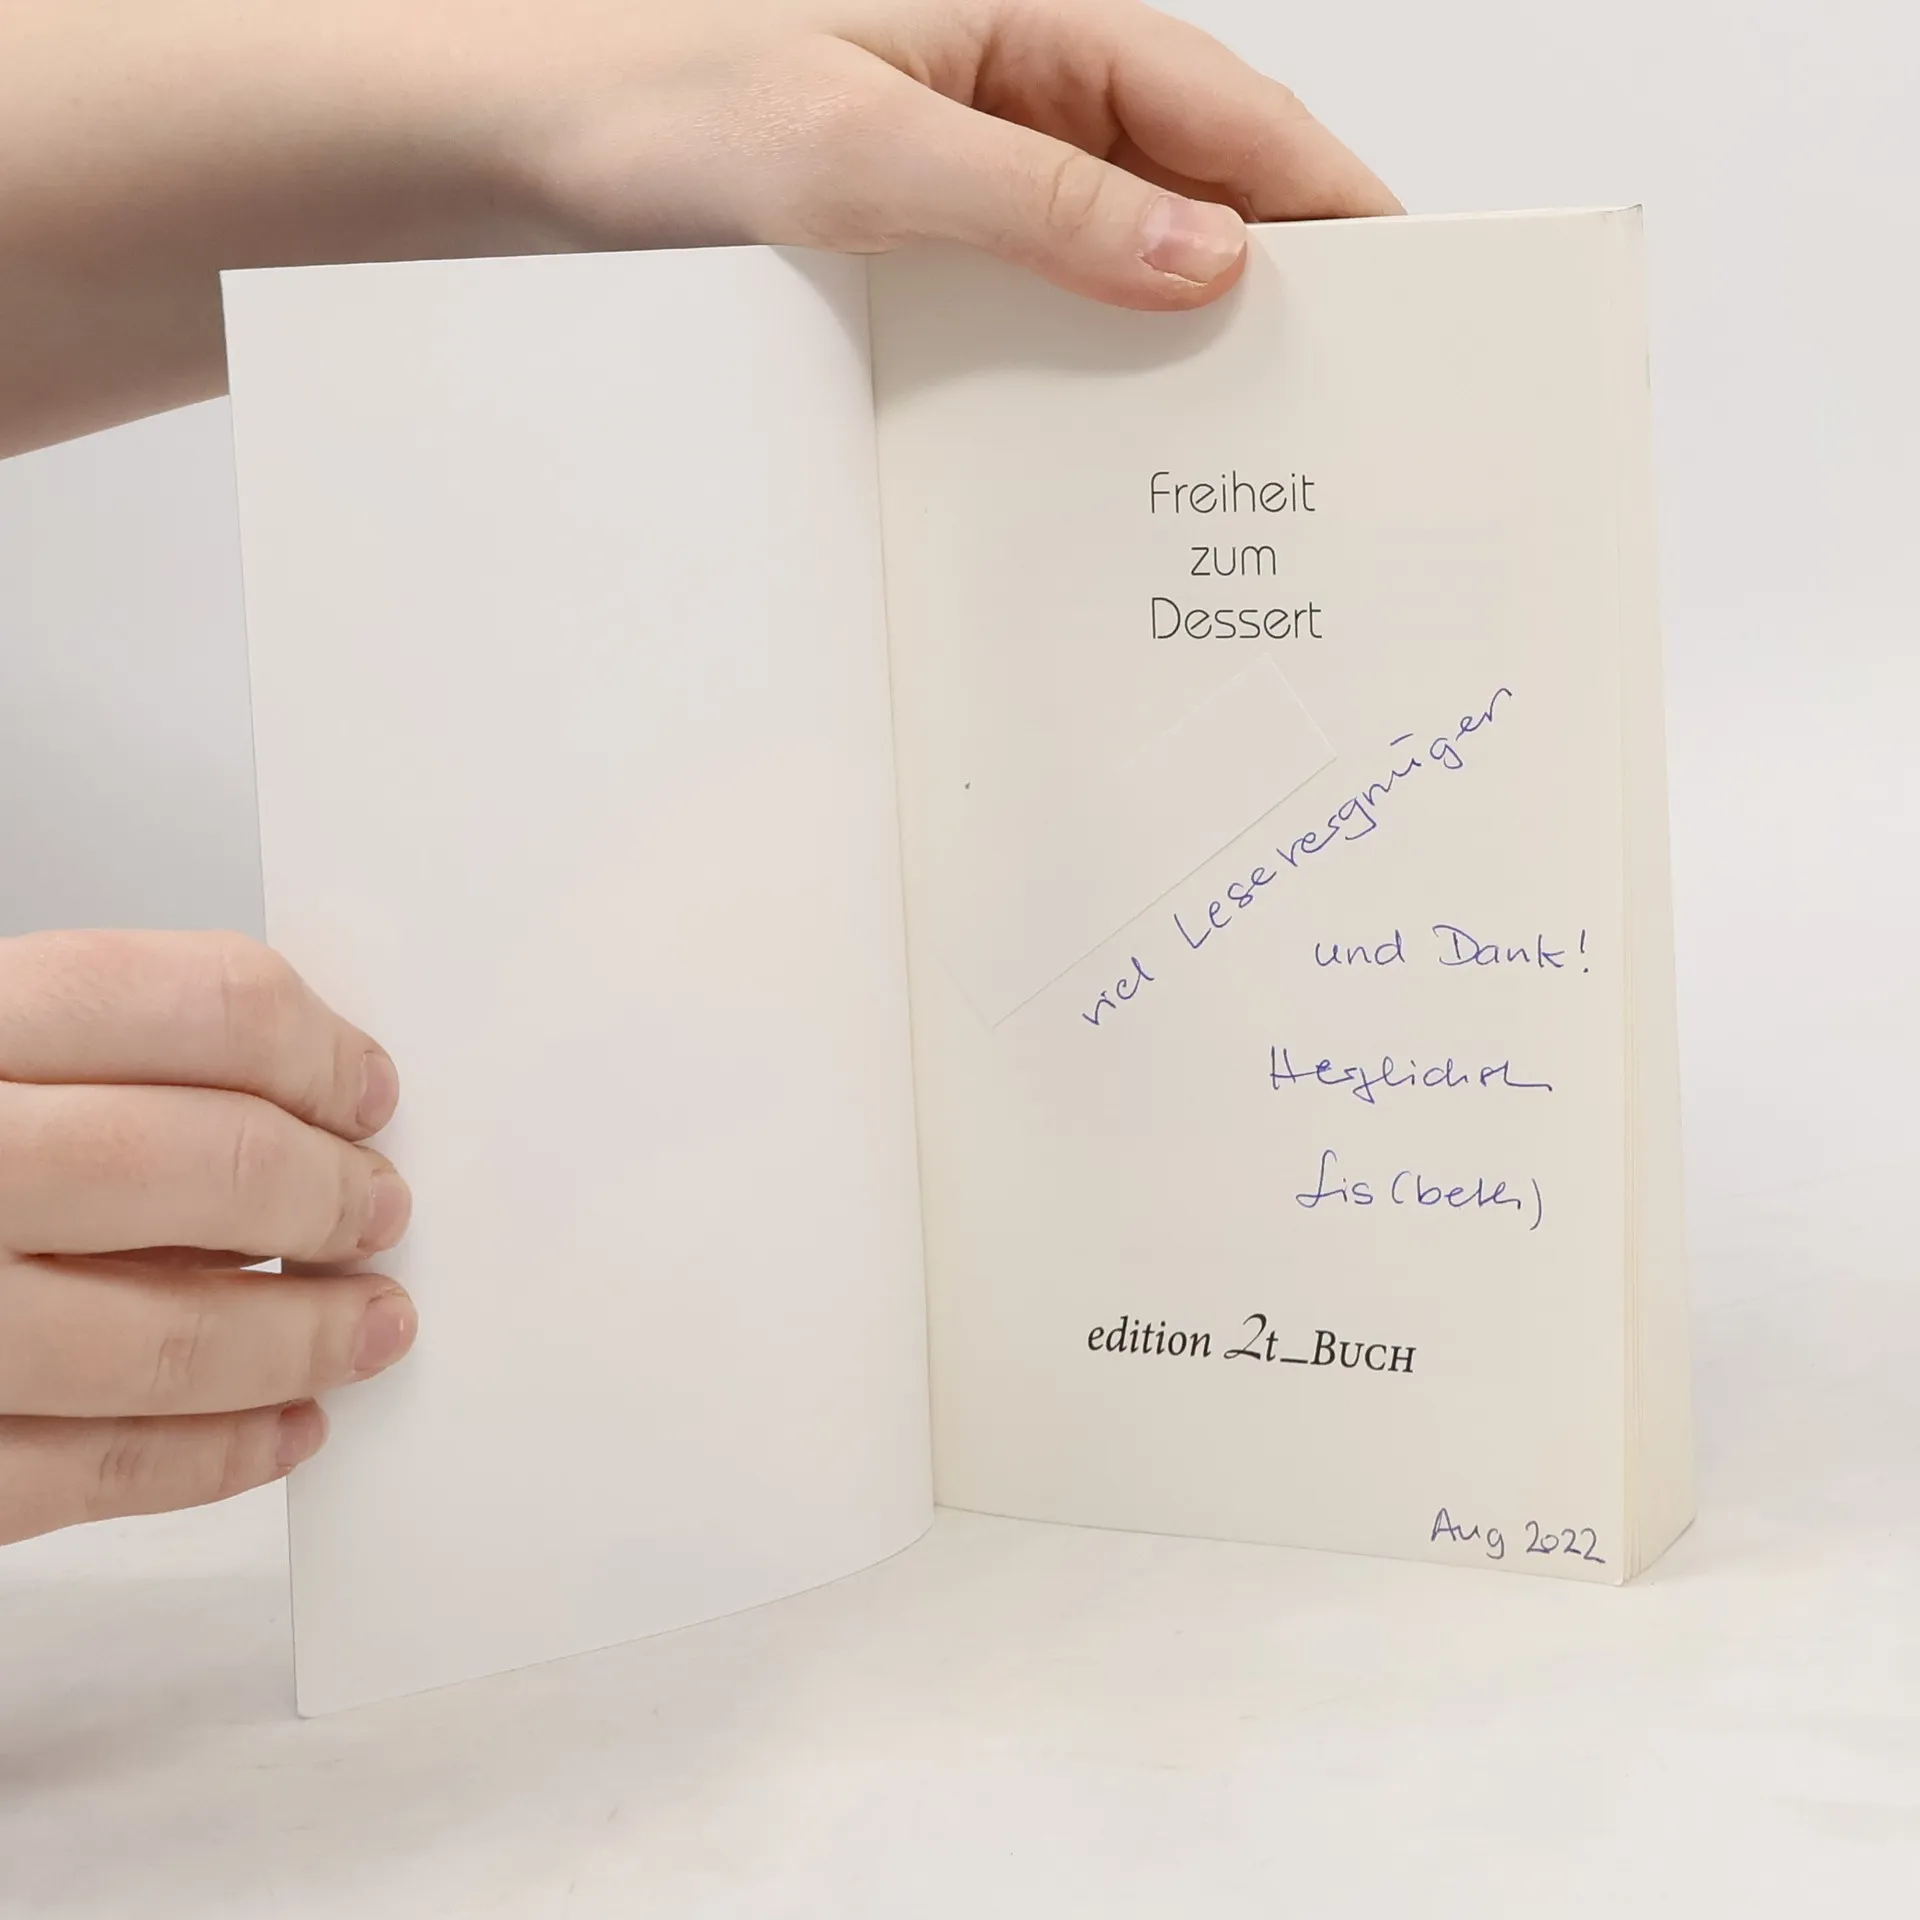 Freiheit
zum
Dessert
viel Lesevergnügen
und Dank!
Herzlichst
Lis(beth)
edition 2t_BUCH
Aug 2022